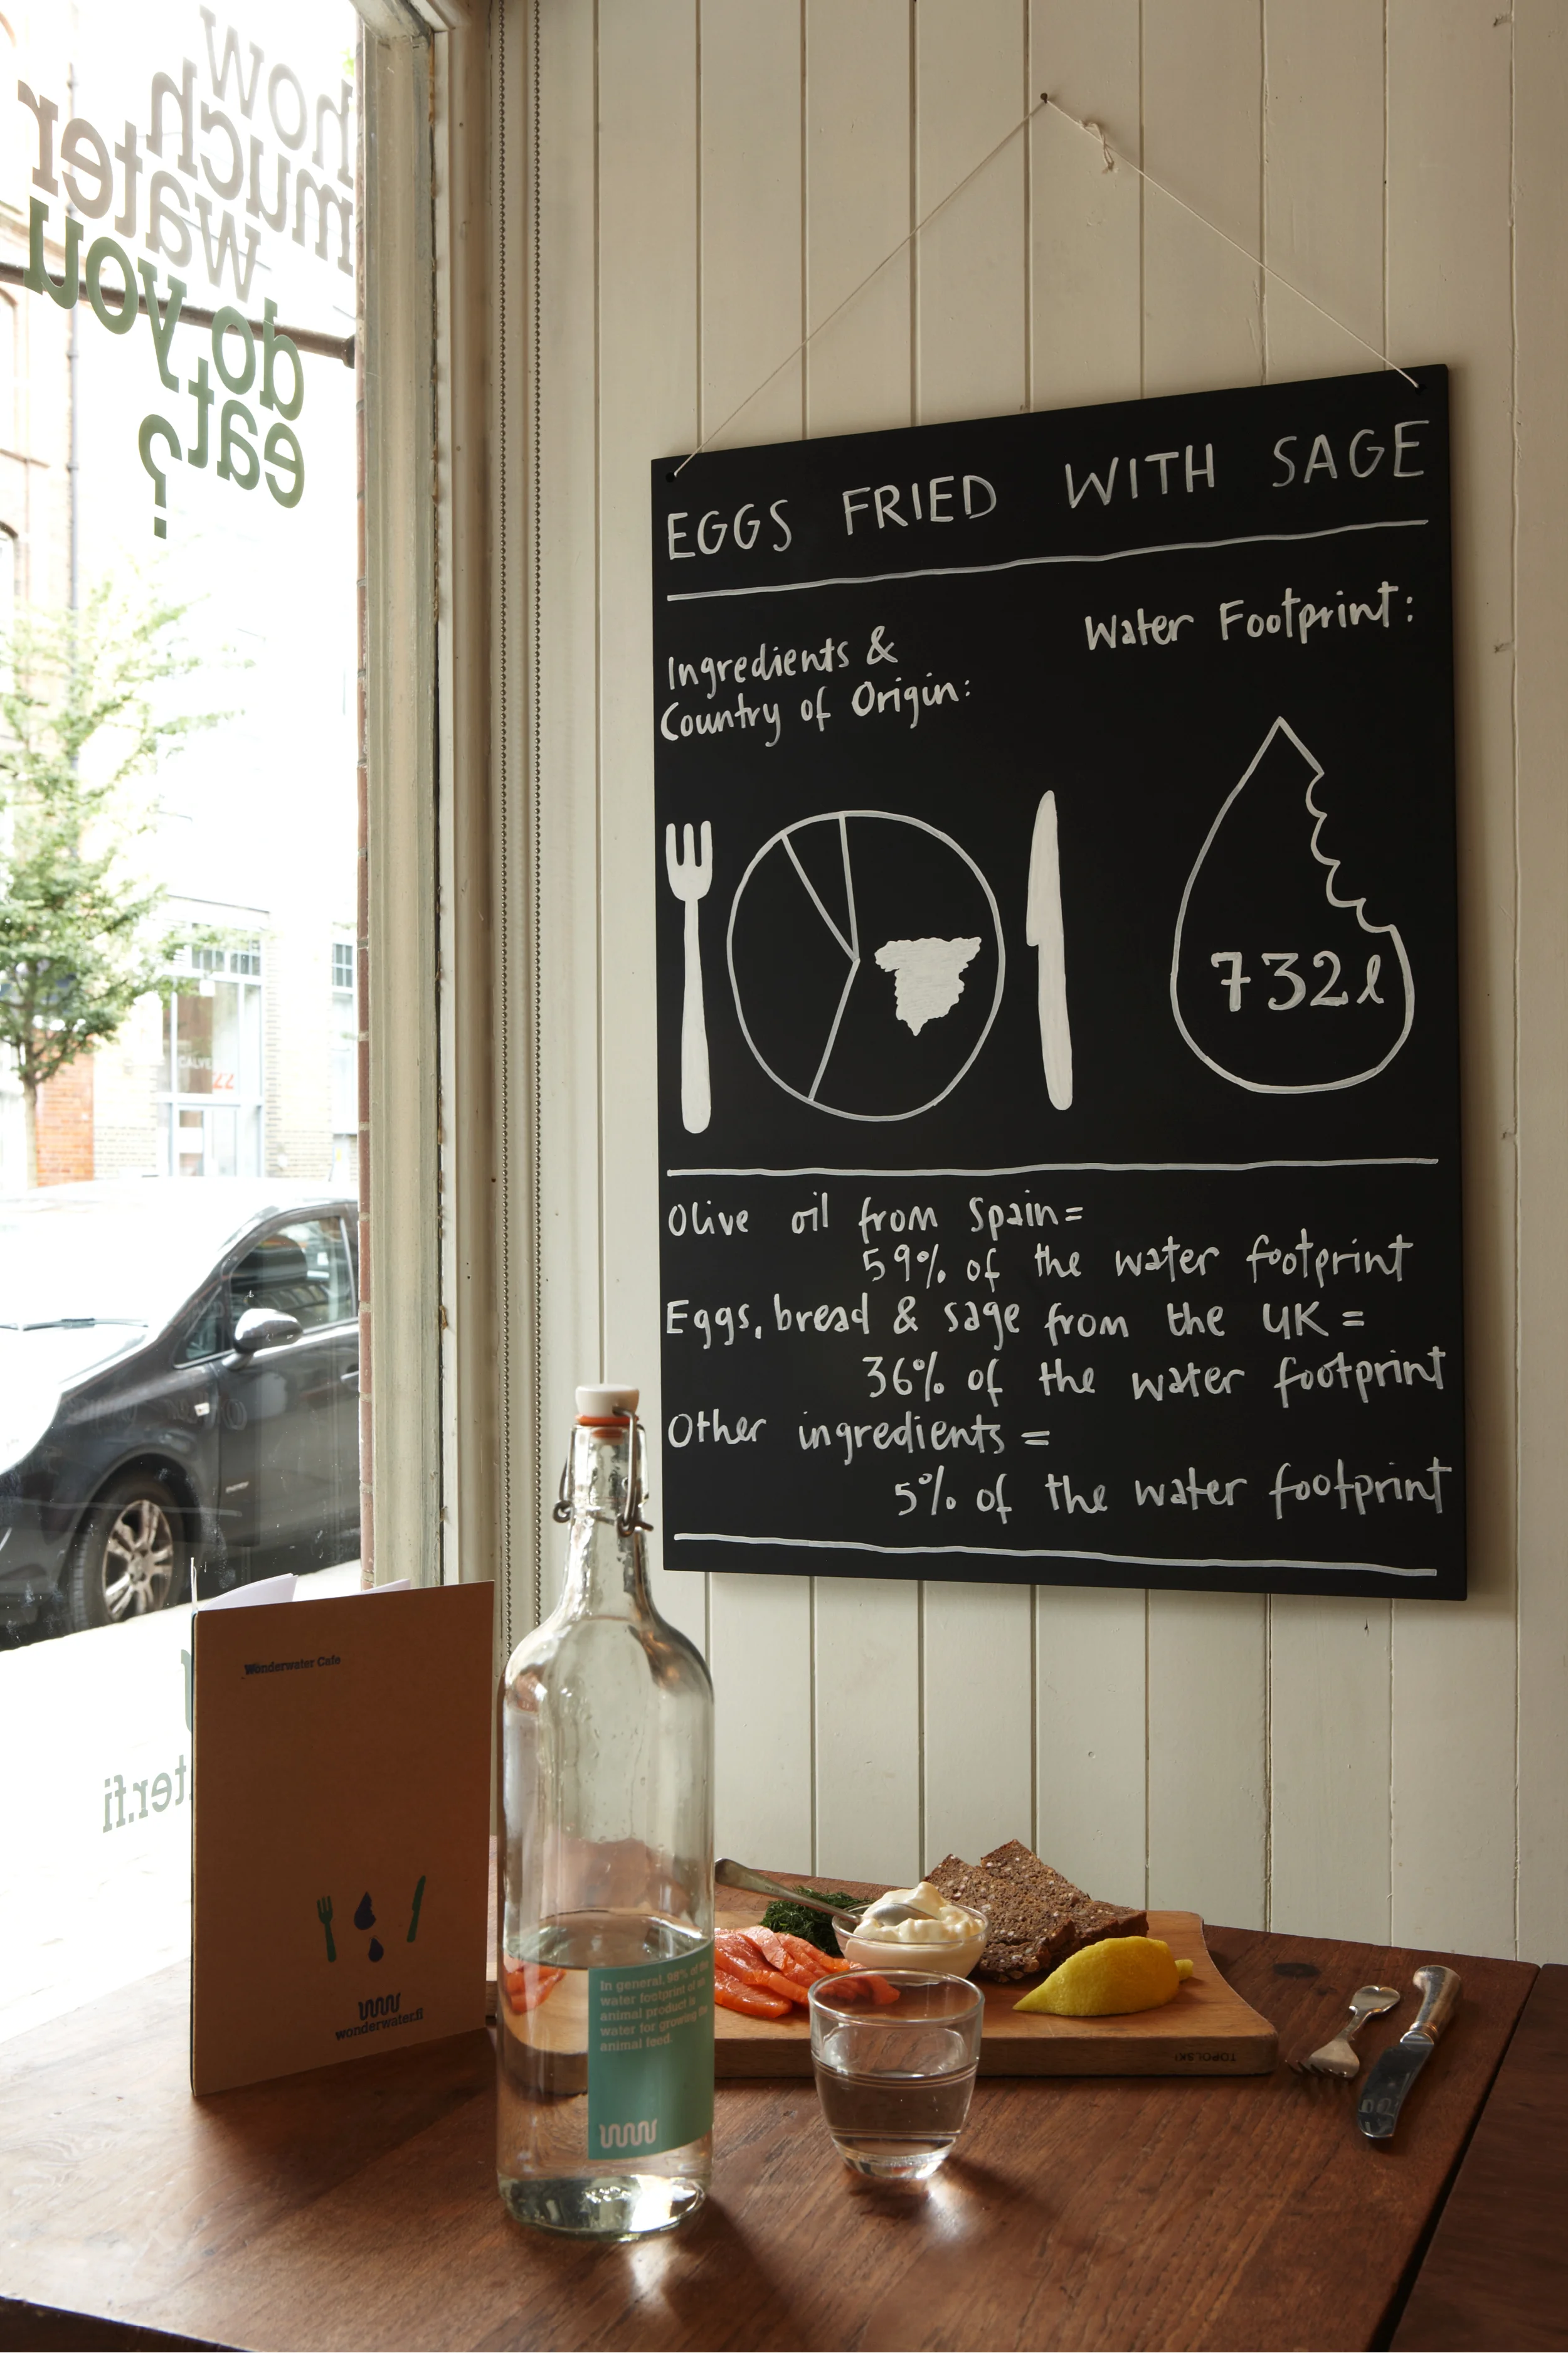 how
much
water
do you
eat
?
EGGS FRIED WITH SAGE
Ingredients &
Country of Origin:
Water Footprint:
732l
Olive oil from Spain=
59% of the water footprint
Eggs, bread & sage from the UK =
36% of the water footprint
Other ingredients =
5% of the water footprint
ter.fi
Wonderwater Cafe
wonderwater.fi
In general, 98% of the
water footprint of an
animal product is
water for growing the
animal feed.
TOPOLSKI